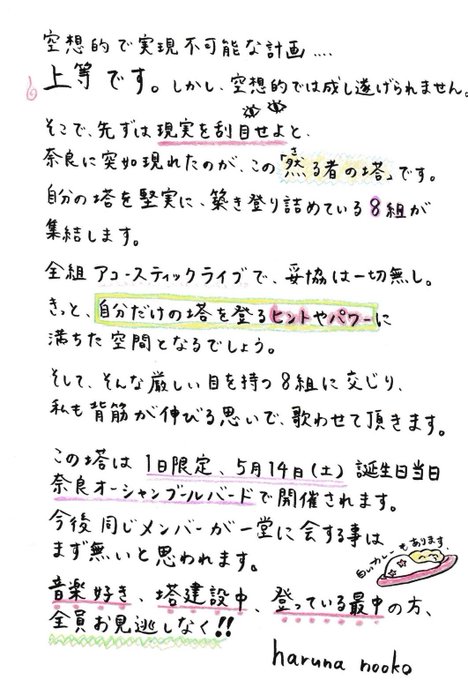 空想的で実現不可能な計画....
上等です。しかし、空想的では成し遂げられません。
そこで、先ずは現実を刮目せよと、
奈良に突如現れたのが、この「然る者の塔」です。
自分の塔を堅実に、築き登り詰めている8組が
集結します。
全組アコースティックライブで、妥協は一切無し。
きっと、自分だけの塔を登るヒントやパワーに
満ちた空間となるでしょう。
そして、そんな厳しい目を持つ8組に交じり、
私も背筋が伸びる思いで、歌わせて頂きます。
この塔は1日限定、5月14日(土)誕生日当日
奈良オーシャンブールバードで開催されます。
今後同じメンバーが一堂に会する事は
まず無いと思われます。
白いカレーもあります。
音楽好き、塔建設中、登っている最中の方、
全員お見逃しなく!!
haruna nooka